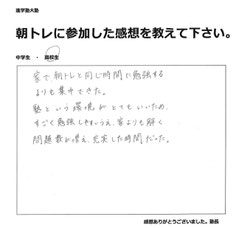 進学塾大塾
朝トレに参加した感想を教えて下さい。
中学生 ・ 高校生
家で朝トレと同じ時間に勉強する
よりも集中できた。
塾という環境がとてもいいため、
すごく勉強しやすいうえ、家よりも解く
問題数が増え、充実した時間だった。
感想ありがとうございました。塾長